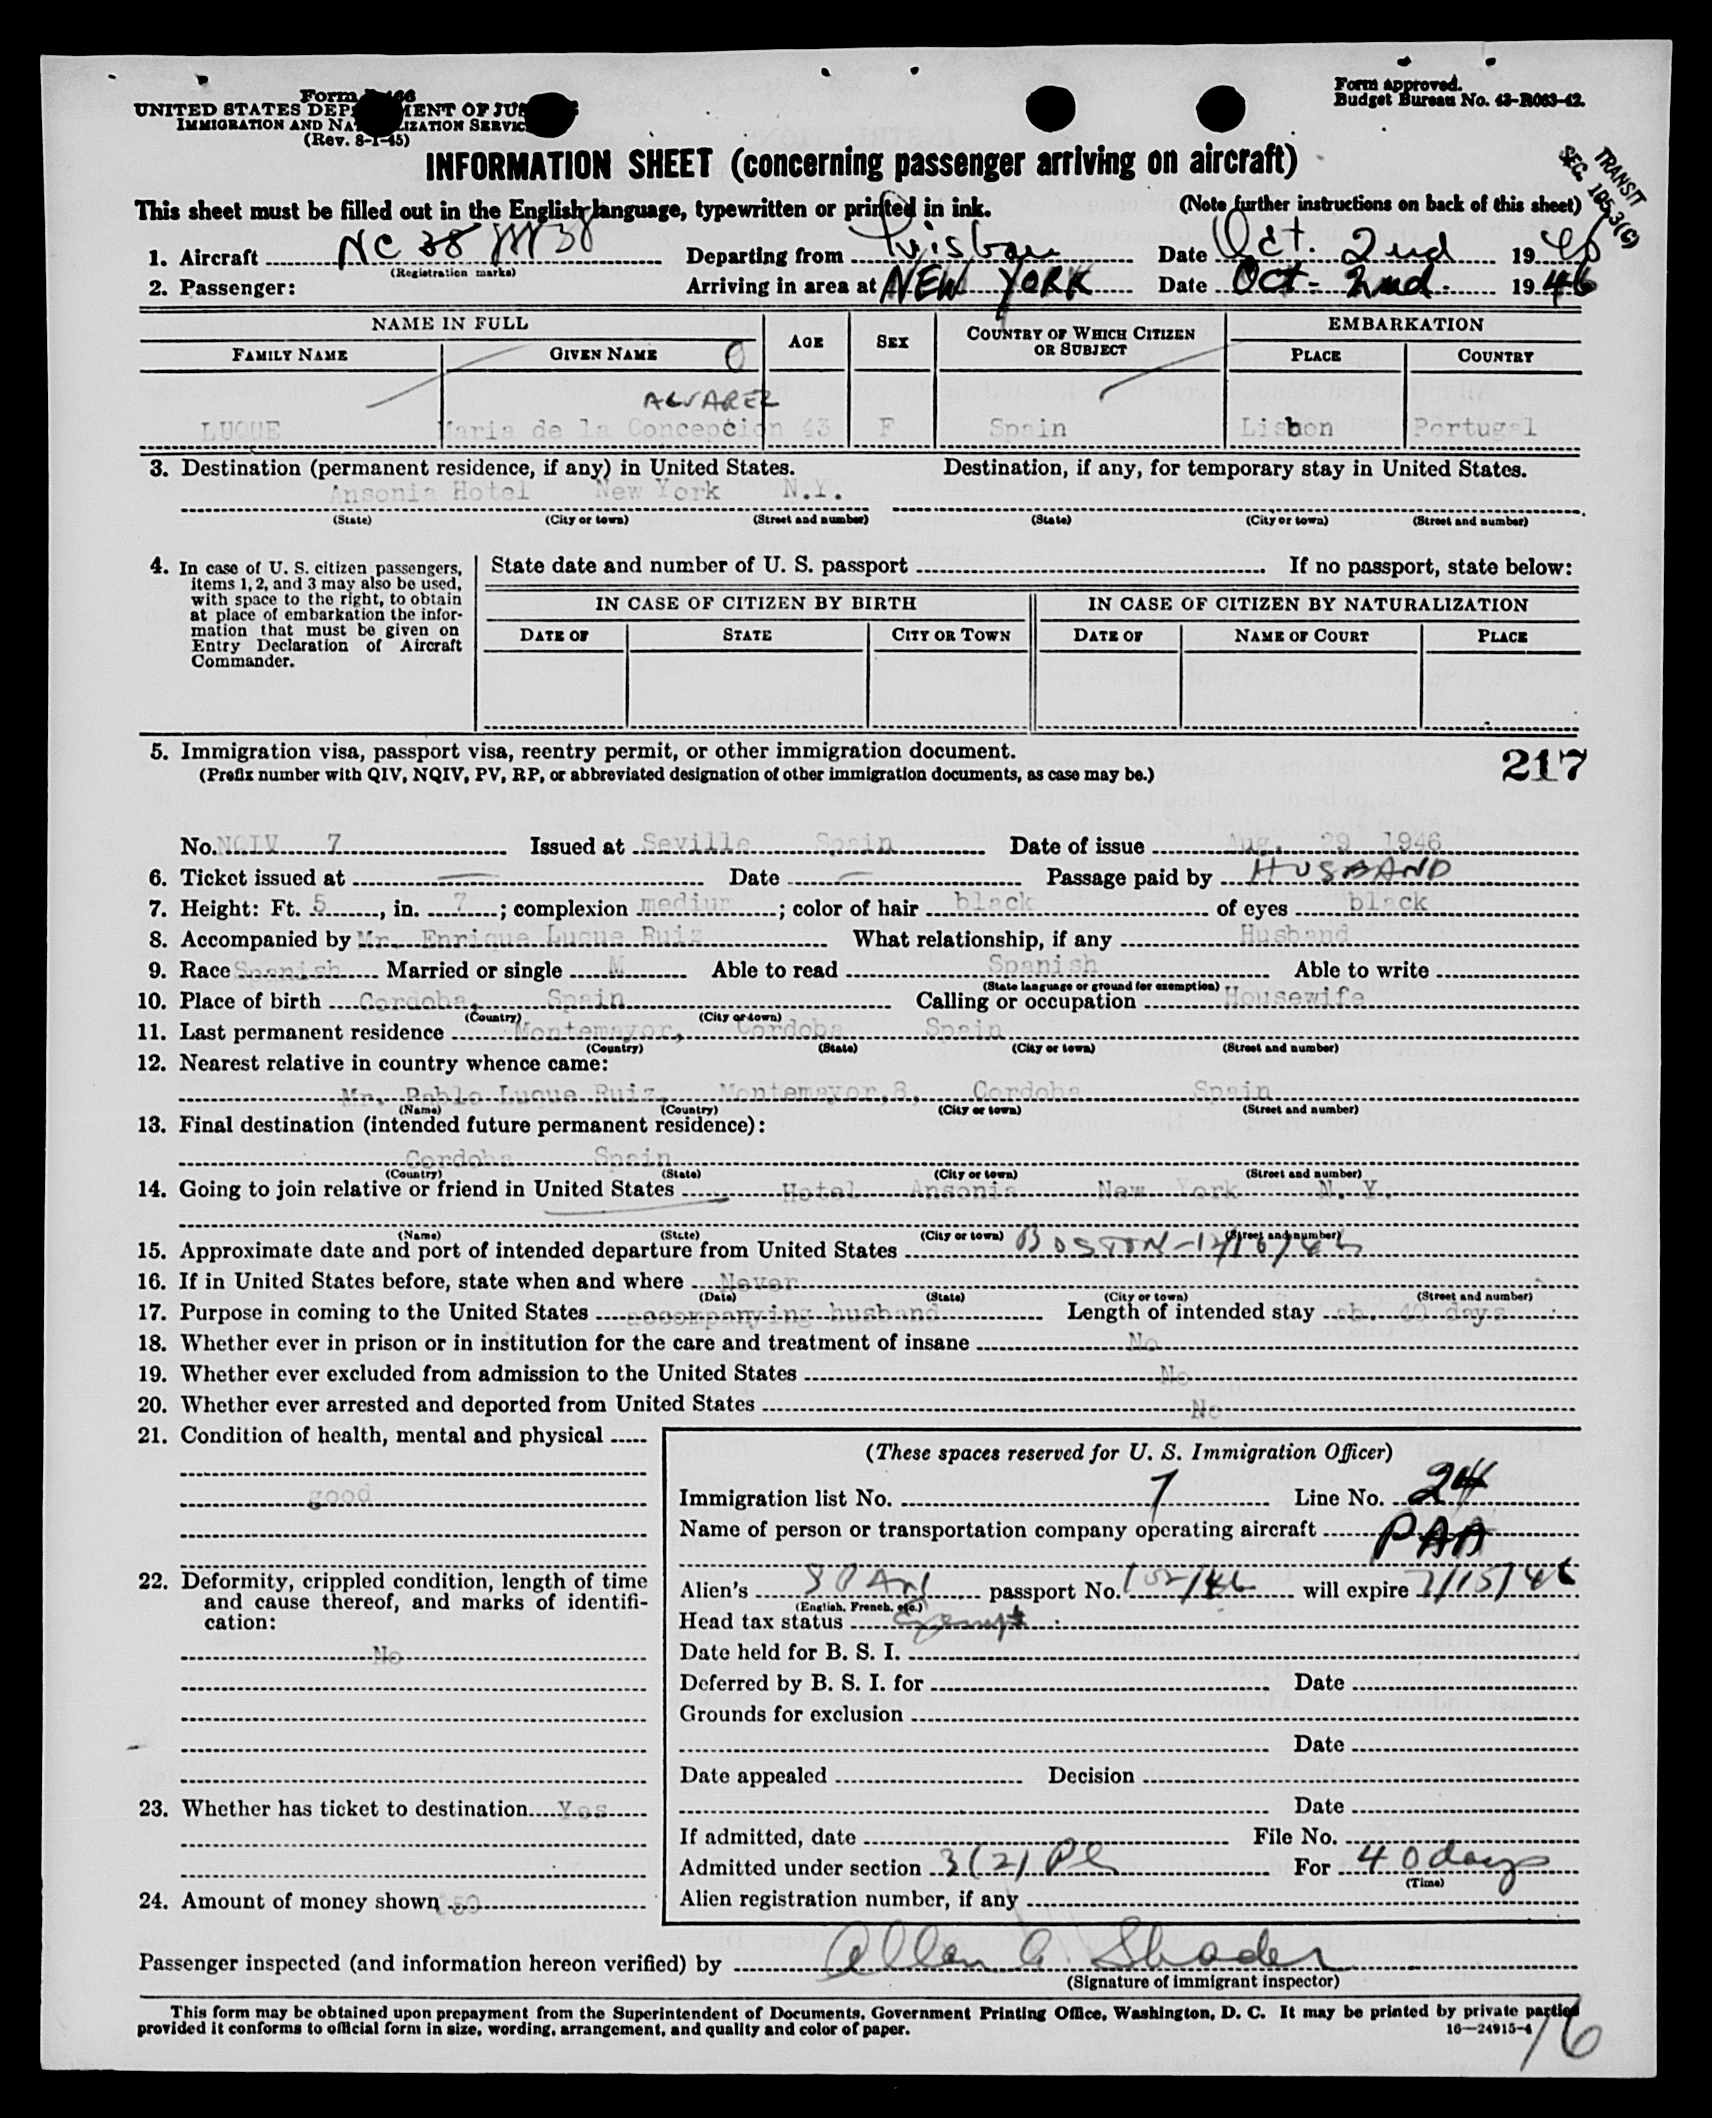 Form
UNITED STATES DEP MENT OF JU
IMMIGRATION AND NA LIZATION SERVIC
(Rev. 8-1-45)
Form approved.
Budget Bureau No. 43-R063-42.
TRANSIT
SEC. 105.3(C)
INFORMATION SHEET (concerning passenger arriving on aircraft)
This sheet must be filled out in the English language, typewritten or printed in ink. (Note further instructions on back of this sheet)
1. Aircraft NC Departing from Date Oct. 2nd 1946
(Registration marks)
2. Passenger: Arriving in area at NEW YORK Date Oct - 2nd. 1946
NAME IN FULL AGE SEX COUNTRY OF WHICH CITIZEN OR SUBJECT EMBARKATION
FAMILY NAME GIVEN NAME PLACE COUNTRY
ALVAREZ
LUQUE Maria de la Concepcion 43 F Spain Lisbon Portugal
3. Destination (permanent residence, if any) in United States. Destination, if any, for temporary stay in United States.
Ansonia Hotel New York N.Y.
(State) (City or town) (Street and number) (State) (City or town) (Street and number)
4. In case of U. S. citizen passengers, items 1, 2, and 3 may also be used, with space to the right, to obtain at place of embarkation the information that must be given on Entry Declaration of Aircraft Commander.
State date and number of U. S. passport If no passport, state below:
IN CASE OF CITIZEN BY BIRTH IN CASE OF CITIZEN BY NATURALIZATION
DATE OF STATE CITY OR TOWN DATE OF NAME OF COURT PLACE
5. Immigration visa, passport visa, reentry permit, or other immigration document.
(Prefix number with QIV, NQIV, PV, RP, or abbreviated designation of other immigration documents, as case may be.)
217
No. NQIV 7 Issued at Seville Spain Date of issue Aug. 29 1946
6. Ticket issued at — Date — Passage paid by HUSBAND
7. Height: Ft. 5, in. 7; complexion medium; color of hair black of eyes black
8. Accompanied by Mr. Enrique Luque Ruiz What relationship, if any Husband
9. Race Spanish Married or single M Able to read Spanish Able to write
(State language or ground for exemption)
10. Place of birth Cordoba, Spain Calling or occupation Housewife
(Country) (City or town)
11. Last permanent residence Montemayor, Cordoba Spain
(Country) (State) (City or town) (Street and number)
12. Nearest relative in country whence came:
Mr. Pablo Luque Ruiz, Montemayor,8, Cordoba Spain
(Name) (Country) (City or town) (Street and number)
13. Final destination (intended future permanent residence):
Cordoba Spain
(Country) (State) (City or town) (Street and number)
14. Going to join relative or friend in United States Hotel Ansonia New York N. Y.
(Name) (State) (City or town) (Street and number)
15. Approximate date and port of intended departure from United States BOSTON
16. If in United States before, state when and where Never
(Date) (State) (City or town) (Street and number)
17. Purpose in coming to the United States accompanying husband Length of intended stay ab. 40 days
18. Whether ever in prison or in institution for the care and treatment of insane No
19. Whether ever excluded from admission to the United States No
20. Whether ever arrested and deported from United States No
21. Condition of health, mental and physical
good
22. Deformity, crippled condition, length of time and cause thereof, and marks of identification:
No
23. Whether has ticket to destination Yes
24. Amount of money shown
(These spaces reserved for U. S. Immigration Officer)
Immigration list No. 7 Line No. 24
Name of person or transportation company operating aircraft PAA
Alien's SPAN passport No. will expire 7/15/46
(English, French, etc.)
Head tax status Exempt
Date held for B. S. I.
Deferred by B. S. I. for Date
Grounds for exclusion
Date
Date appealed Decision
Date
If admitted, date File No.
Admitted under section 3(2) For 40 days
(Time)
Alien registration number, if any
Passenger inspected (and information hereon verified) by Allen G. Shader
(Signature of immigrant inspector)
This form may be obtained upon prepayment from the Superintendent of Documents, Government Printing Office, Washington, D. C. It may be printed by private parties
provided it conforms to official form in size, wording, arrangement, and quality and color of paper. 16—24915-4